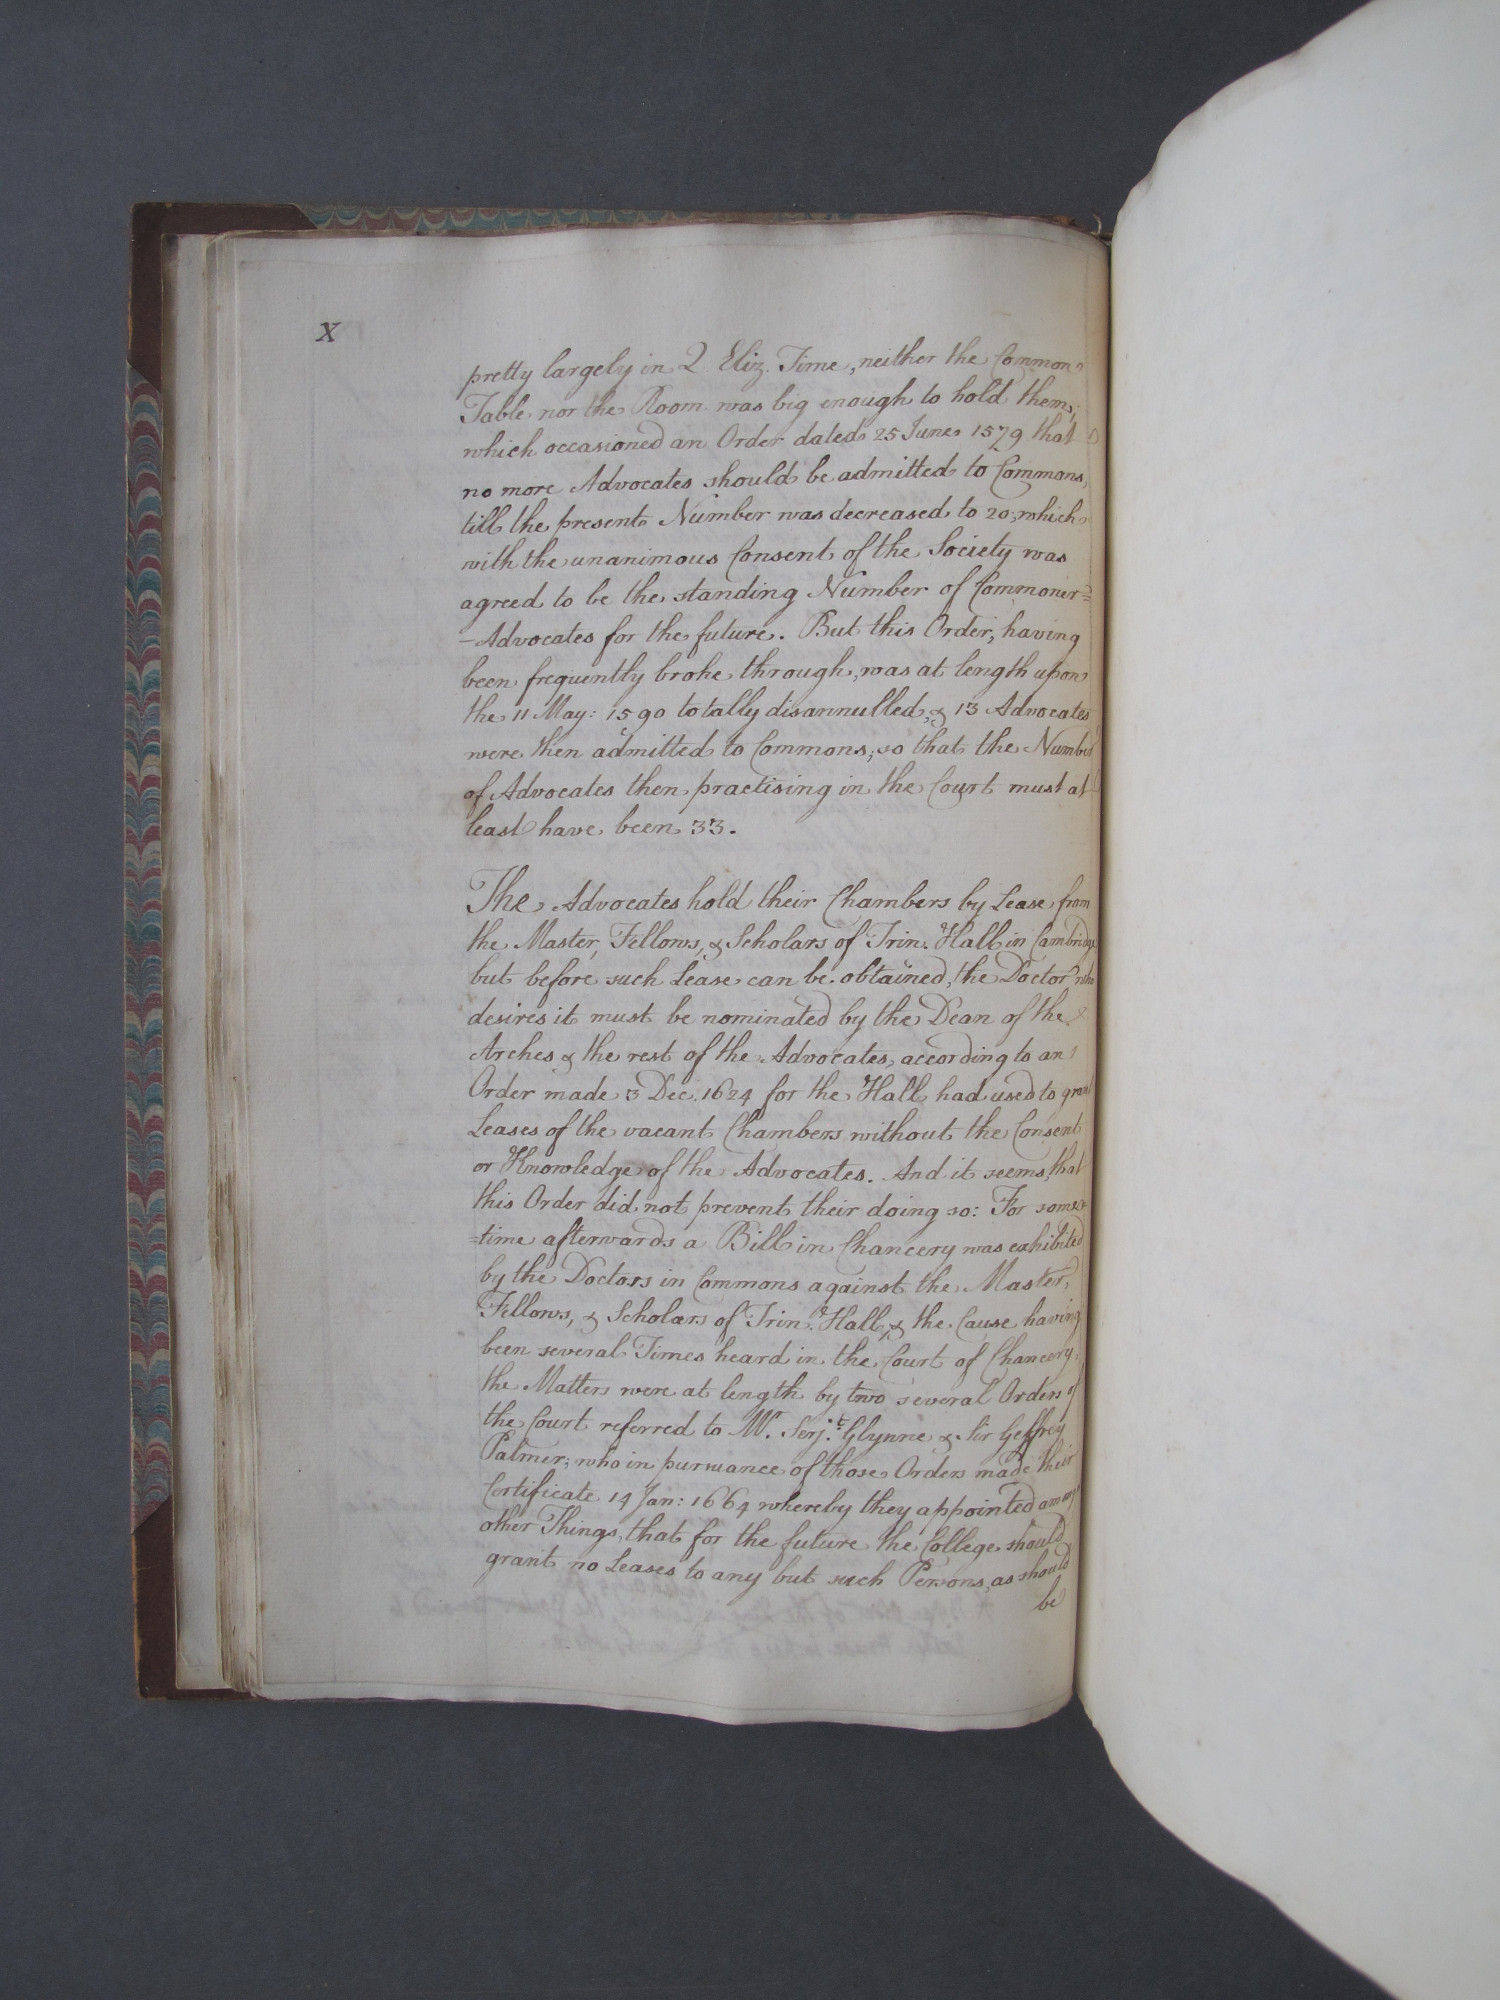 X
pretty largely in Q Eliz. Time, neither the Common
Table nor the Room was big enough to hold them;
which occasioned an Order dated 25 June 1579 that
no more Advocates should be admitted to Commons,
till the present Number was decreased to 20; which
with the unanimous Consent of the Society was
agreed to be the standing Number of Commoner=
-Advocates for the future. But this Order, having
been frequently broke through, was at length upon
the 11 May: 1590 totally disannulled, & 13 Advocates
were then admitted to Commons; so that the Number
of Advocates then practising in the Court must at
least have been 33.
The Advocates hold their Chambers by Lease from
the Master, Fellows, & Scholars of Trin. Hall in Cambridge
but before such Lease can be obtained, the Doctor who
desires it must be nominated by the Dean of the
Arches & the rest of the Advocates, according to an
Order made 3 Dec. 1624 for the Hall had used to grant
Leases of the vacant Chambers without the Consent
or Knowledge of the Advocates. And it seems, that
this Order did not prevent their doing so: For some=
=time afterwards a Bill in Chancery was exhibited
by the Doctors in Commons against the Master,
Fellows, & Scholars of Trin. Hall, & the Cause having
been several Times heard in the Court of Chancery,
the Matters were at length by two several Orders of
the Court referred to Mr. Serj.t Glynne & Sir Geffrey
Palmer; who in pursuance of those Orders made their
Certificate 14 Jan: 1664 whereby they appointed among
other Things, that for the future the College should
grant no Leases to any but such Persons, as should
be